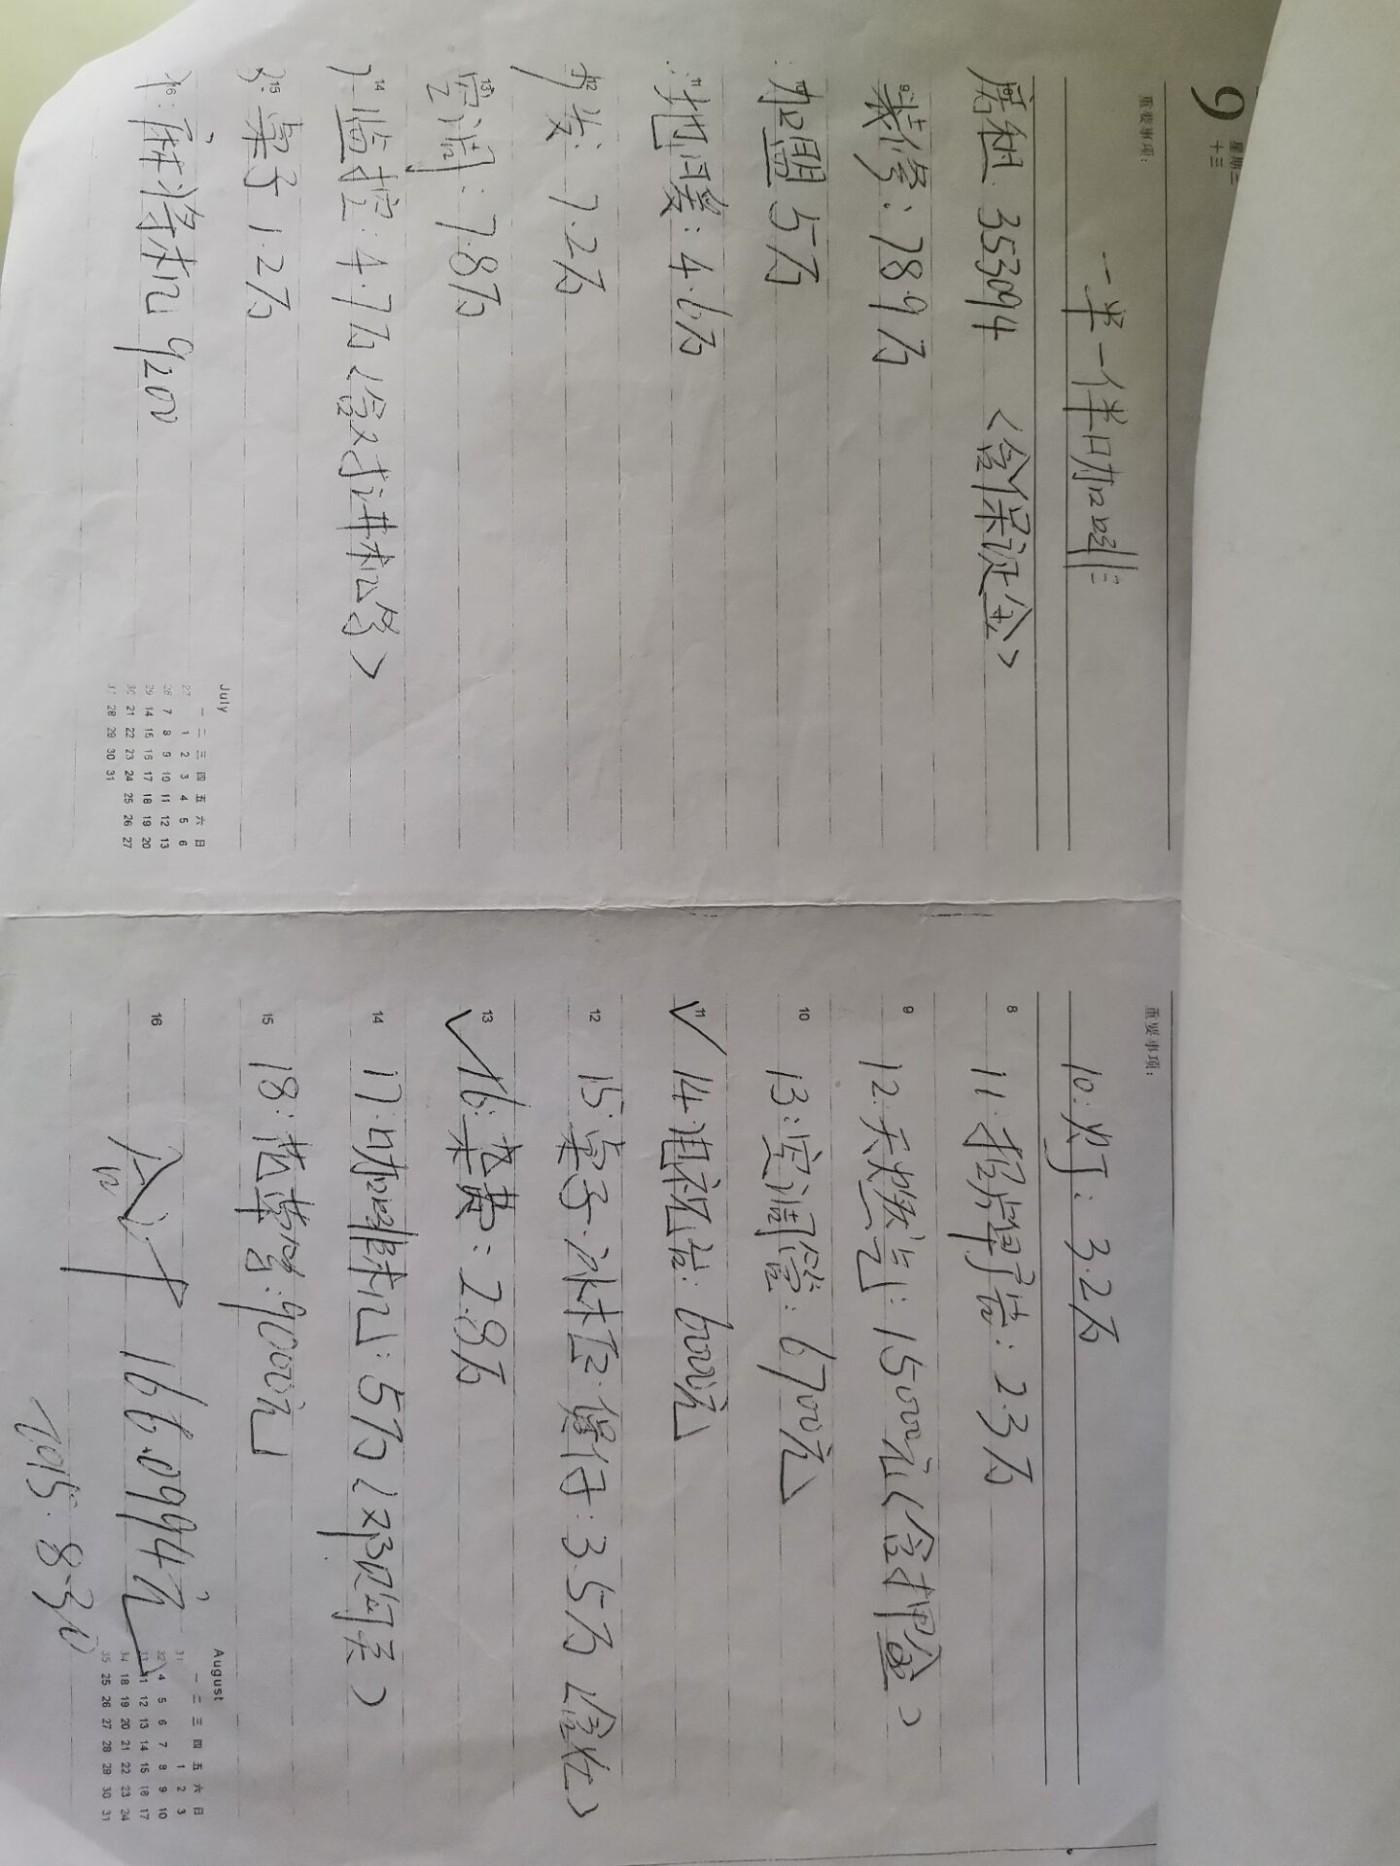 9 星期三
十三
重要事项:
一半一伴咖啡
房租: 353094 (含保证金)
装修: 78.9万
加盟 5万
11 地暖: 4.6万
沙发: 7.2万
13 空调: 7.8万
14 监控: 4.7万 (含对讲机等)
15 桌子 1.2万
16 麻将机 9200
July
一 二 三 四 五 六 日
27 1 2 3 4 5 6
28 7 8 9 10 11 12 13
29 14 15 16 17 18 19 20
30 21 22 23 24 25 26 27
31 28 29 30 31
重要事项:
10: 灯: 3.2万
8 11: 招牌广告: 2.3万
9 12: 天燃气: 15000元 (含押金)
10 13: 空调管: 6700元
11 √ 14: 电视台: 6000元
12 15: 桌子·冰柜·货行: 3.5万
13 √ 16: 杂费: 2.8万
14 17: 咖啡机: 5万
15 18: 花草等: 9000元
16 合计 166.0994万
2015.8.30
August
一 二 三 四 五 六 日
31 1 2 3
32 4 5 6 7 8 9 10
33 11 12 13 14 15 16 17
34 18 19 20 21 22 23 24
35 25 26 27 28 29 30 31